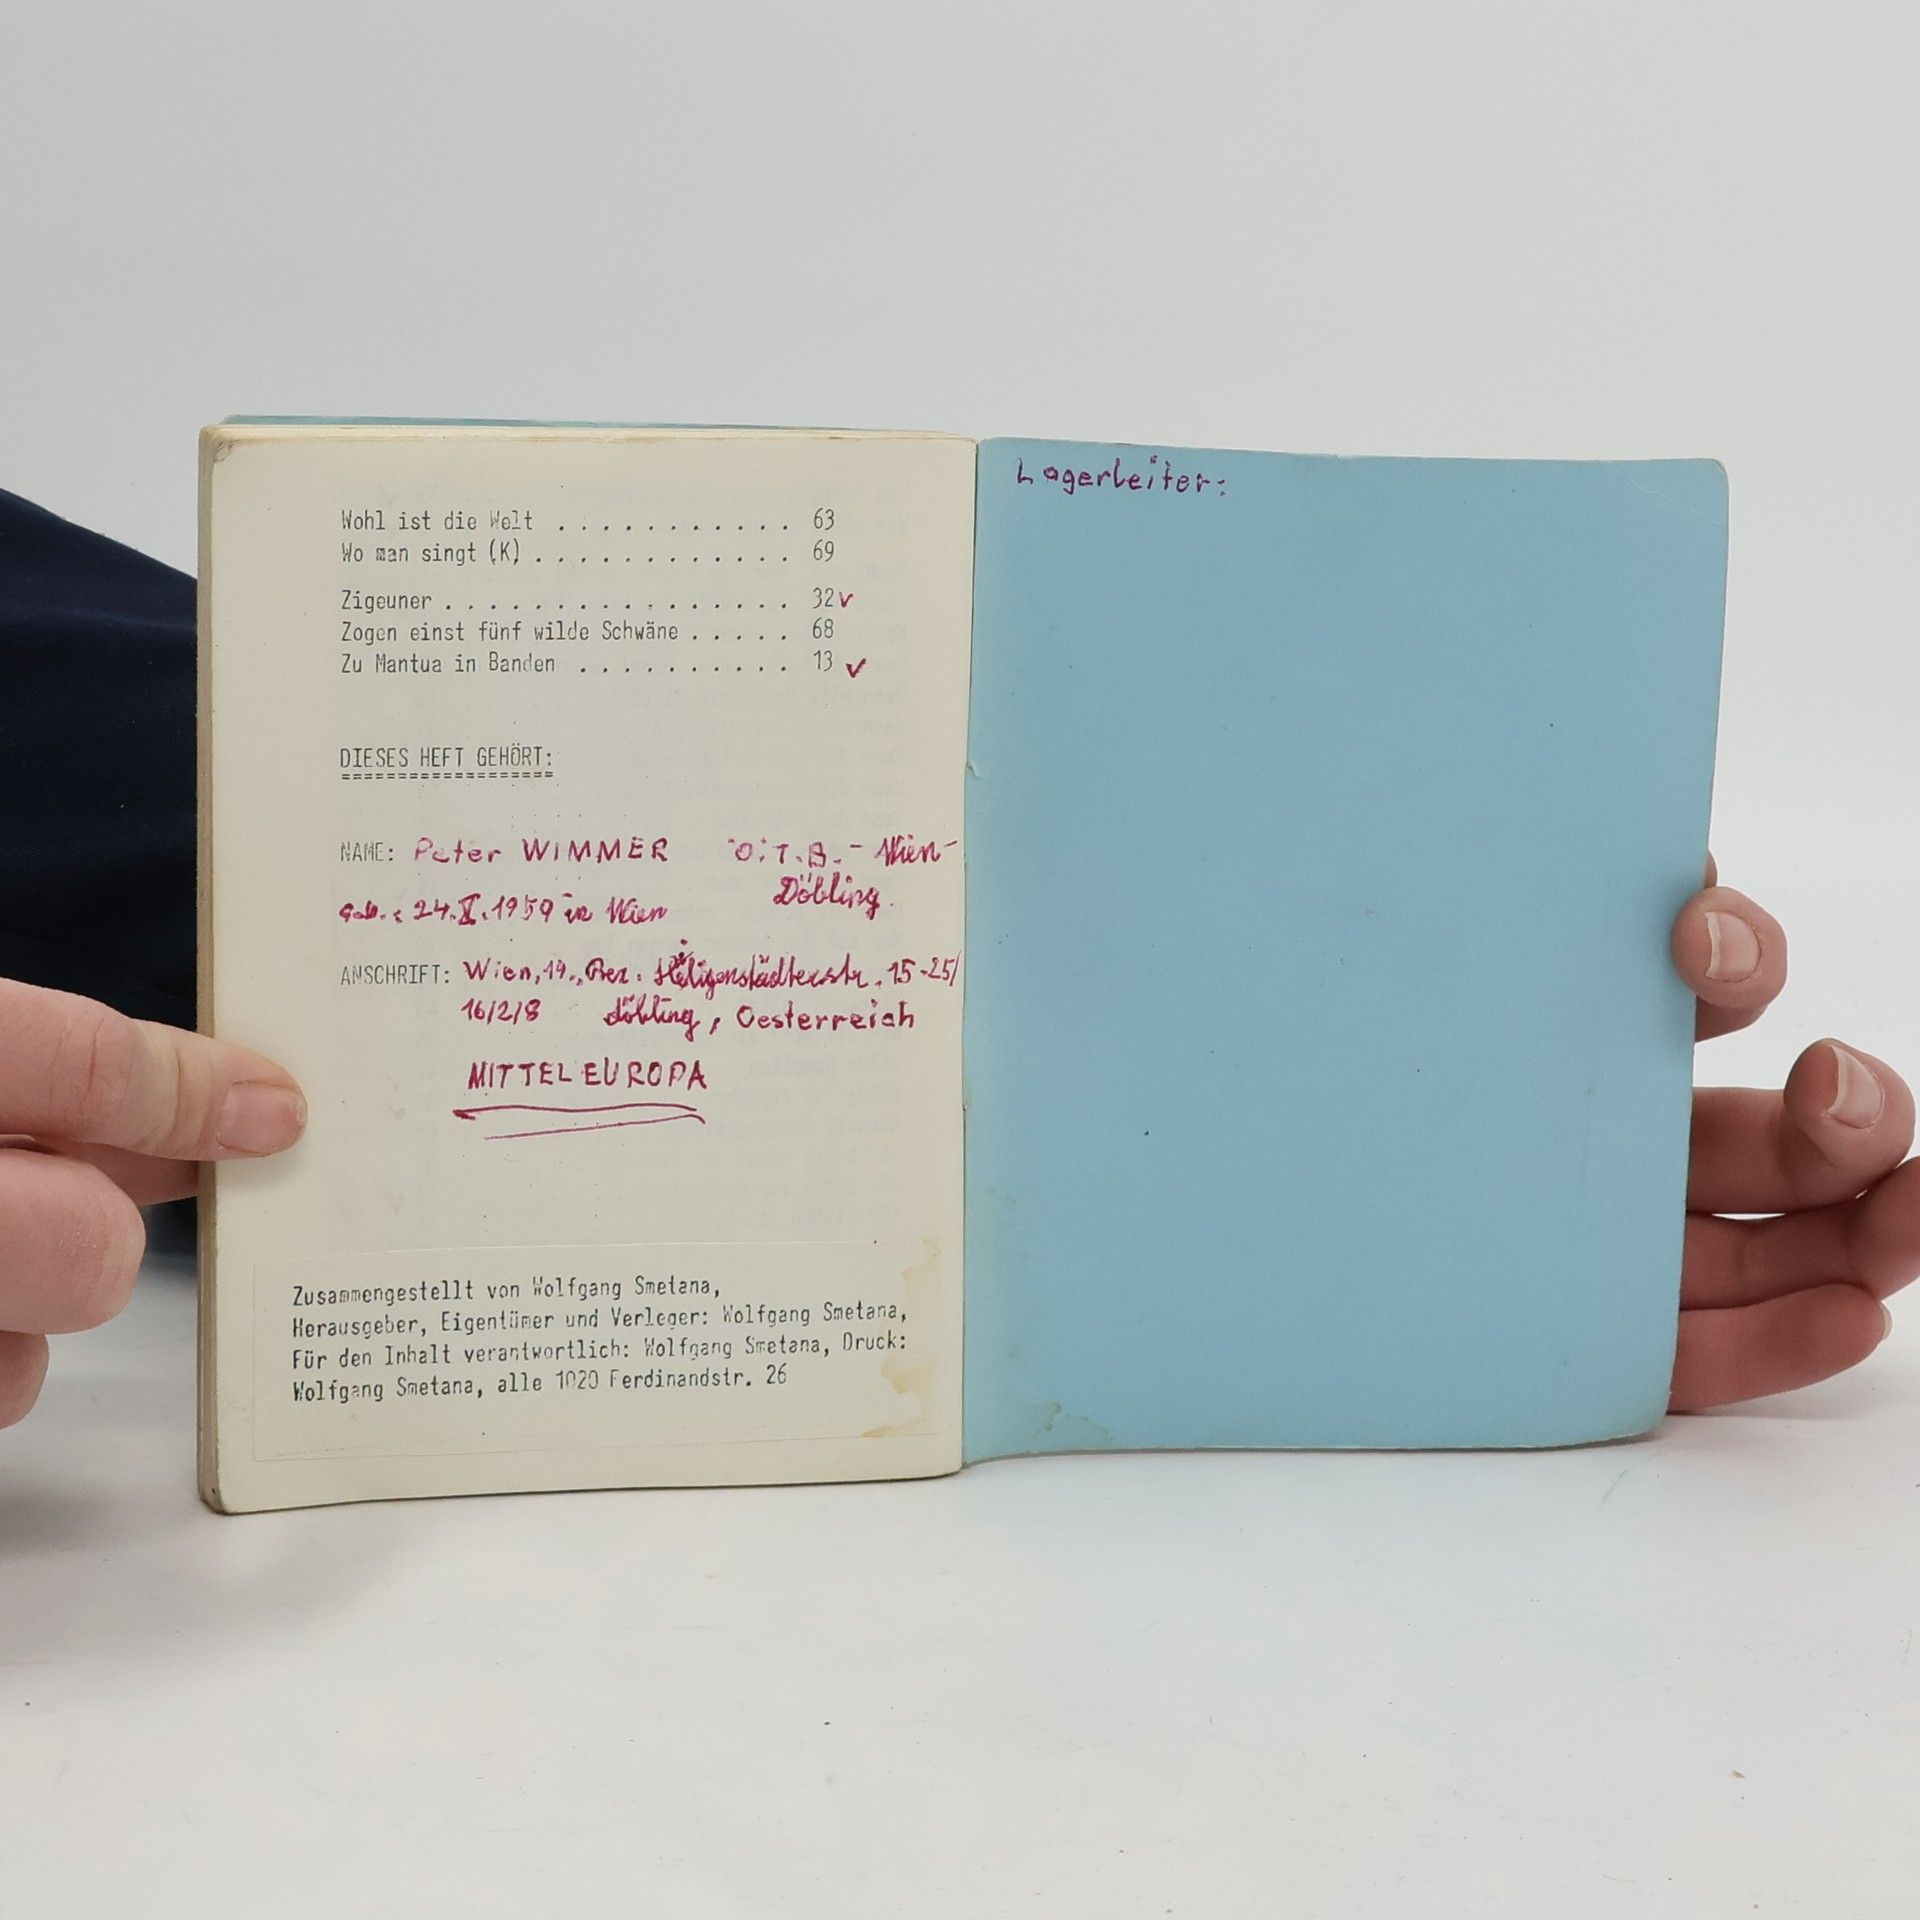 Wohl ist die Welt . . . . . . . . . . . 63
Wo man singt (K) . . . . . . . . . . . . 69
Zigeuner . . . . . . . . . . . . . . . . 32 ✓
Zogen einst fünf wilde Schwäne . . . . . 68
Zu Mantua in Banden . . . . . . . . . . 13 ✓
DIESES HEFT GEHÖRT:
NAME: Peter WIMMER Ö.T.B. - Wien-
Döbling.
geb.: 24.X.1959 in Wien
ANSCHRIFT: Wien, 19., Bez. Heiligenstädterstr. 15-25/
16/2/8 Döbling, Oesterreich
MITTELEUROPA
Zusammengestellt von Wolfgang Smetana,
Herausgeber, Eigentümer und Verleger: Wolfgang Smetana,
Für den Inhalt verantwortlich: Wolfgang Smetana, Druck:
Wolfgang Smetana, alle 1020 Ferdinandstr. 26
Lagerleiter: